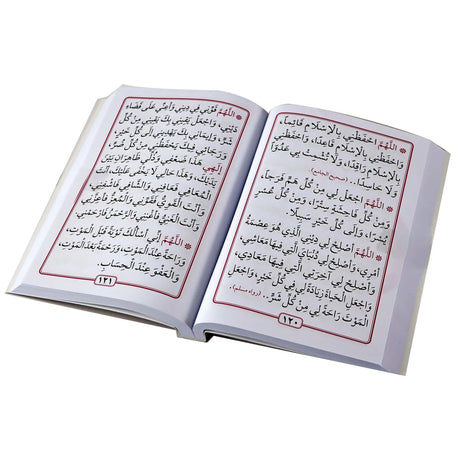 * اللَّهُمَّ احْفَظْنِي بِالْإِسْلَامِ قَائِمًا،
وَاحْفَظْنِي بِالْإِسْلَامِ قَاعِدًا، وَاحْفَظْنِي
بِالْإِسْلَامِ رَاقِدًا، وَلَا تُشْمِتْ بِي عَدُوًّا
وَلَا حَاسِدًا. (صحيح الجامع)
* اللَّهُمَّ اجْعَلْ لِي مِنْ كُلِّ هَمٍّ فَرَجًا،
وَمِنْ كُلِّ فَاحِشَةٍ سِتْرًا، وَمِنْ كُلِّ عُسْرٍ
يُسْرًا، وَإِلَى كُلِّ خَيْرٍ سَبِيلًا.
* اللَّهُمَّ أَصْلِحْ لِي دِينِي الَّذِي هُوَ عِصْمَةُ
أَمْرِي، وَأَصْلِحْ لِي دُنْيَايَ الَّتِي فِيهَا مَعَاشِي،
وَأَصْلِحْ لِي آخِرَتِي الَّتِي فِيهَا مَعَادِي،
وَاجْعَلِ الْحَيَاةَ زِيَادَةً لِي فِي كُلِّ خَيْرٍ، وَاجْعَلِ
الْمَوْتَ رَاحَةً لِي مِنْ كُلِّ شَرٍّ. (رواه مسلم).
١٢٠
* اللَّهُمَّ قَوِّنِي فِي دِينِي وَأَعِنِّي عَلَى قَضَاءِ
دَيْنِي، وَاجْعَلْ يَقِينِي بِكَ يَقِينِي مِنْ كُلِّ
شَرٍّ، وَإِيمَانِي بِكَ يَهْدِينِي إِلَى كُلِّ خَيْرٍ،
وَرَجَائِي فِيكَ يَحْفَظُنِي مِنْ كُلِّ ضُرٍّ.
إِلَهِي هَذَا ضَعْفِي وَذُلِّي ظَاهِرَانِ بَيْنَ
يَدَيْكَ، وَهَذَا حَالِي لَا يَخْفَى عَلَيْكَ، أَنْتَ
الْمُعَافِي فَعَافِنِي، وَالشَّافِي فَاشْفِنِي،
وَأَنْتَ الْقَوِيُّ فَقَوِّنِي وَالْمُعِزُّ فَأَعِزَّنِي،
وَأَنْتَ الْغَنِيُّ فَأَغْنِنِي وَالرَّحْمَنُ فَارْحَمْنِي.
* اللَّهُمَّ إِنِّي أَسْأَلُكَ تَوْبَةً قَبْلَ الْمَوْتِ،
وَرَاحَةً عِنْدَ الْمَوْتِ، وَرَحْمَةً بَعْدَ الْمَوْتِ،
وَالْعَفْوَ عِنْدَ الْحِسَابِ.
١٢١